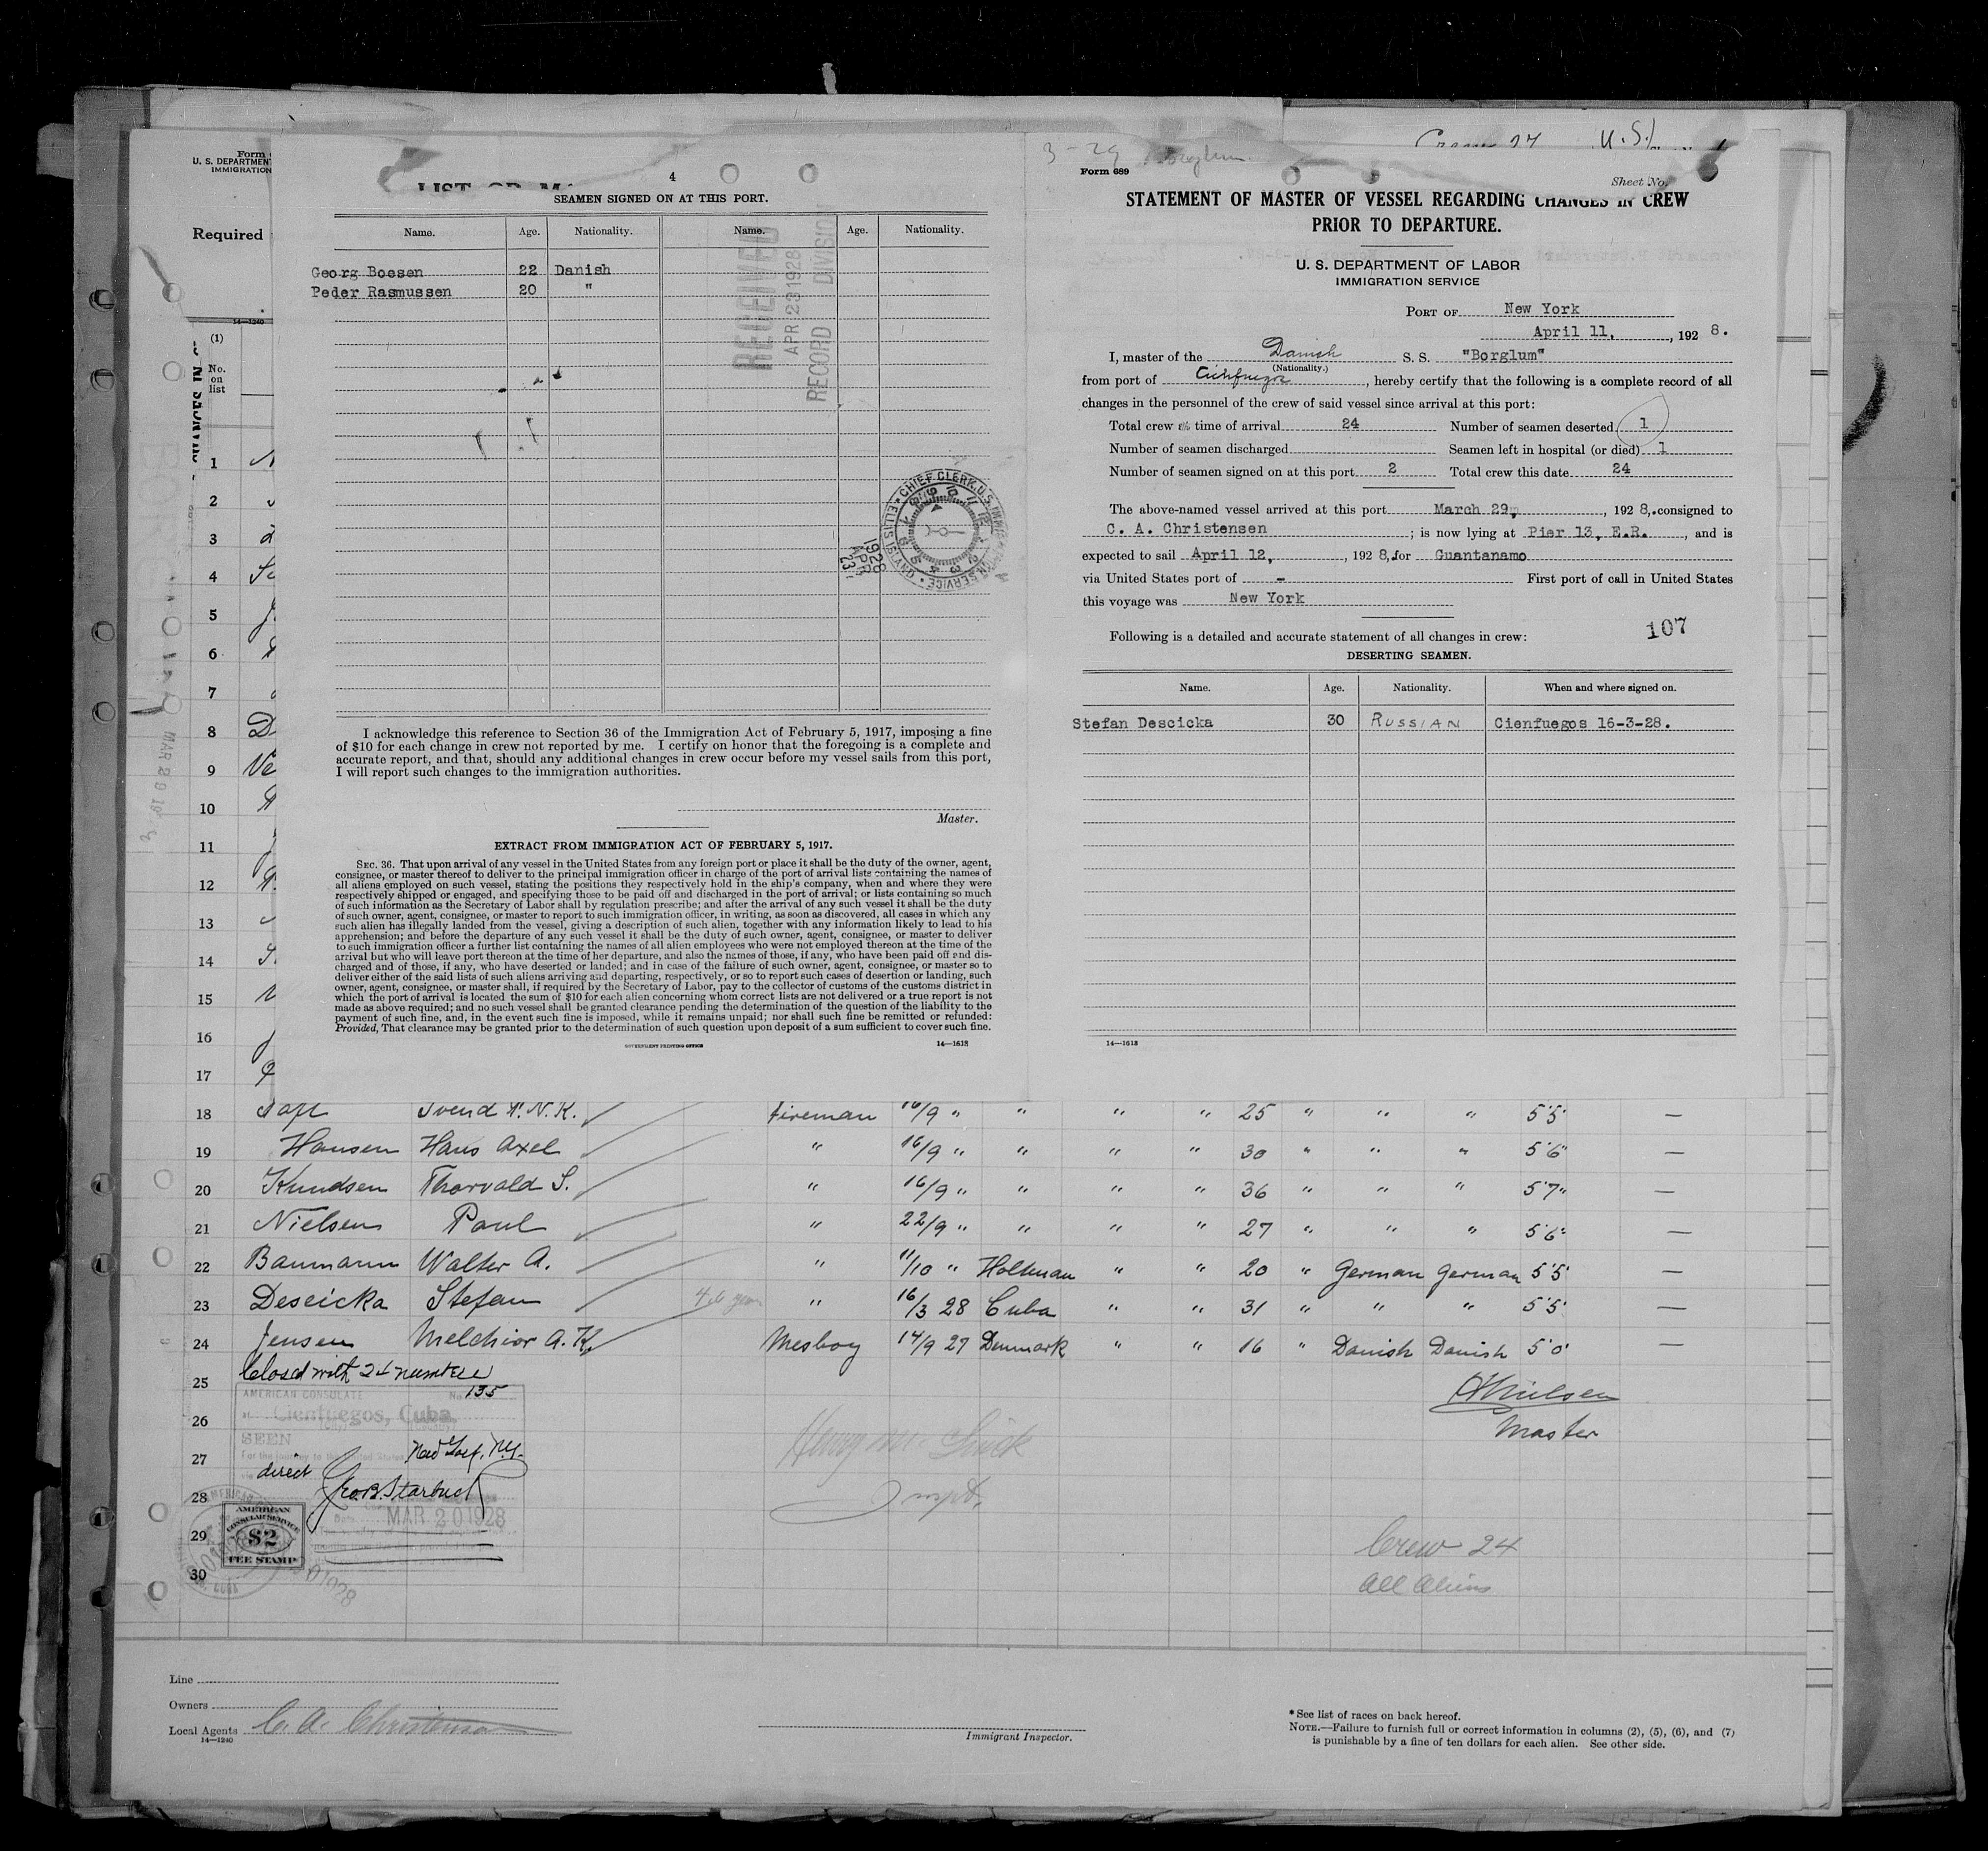 3-29 Borglum.
U.S.
Form
U. S. DEPARTMEN
IMMIGRATION
Required
14—1240
(1)
No.
on
list
4
SEAMEN SIGNED ON AT THIS PORT.
Name. Age. Nationality. Name. Age. Nationality.
Georg Boesen 22 Danish
Peder Rasmussen 20 "
RECEIVED
APR 23 1928
RECORD DIVISION
CHIEF CLERK, U.S. IMMIGRATION SERVICE • ELLIS ISLAND •
1928
APR
23
I acknowledge this reference to Section 36 of the Immigration Act of February 5, 1917, imposing a fine
of $10 for each change in crew not reported by me. I certify on honor that the foregoing is a complete and
accurate report, and that, should any additional changes in crew occur before my vessel sails from this port,
I will report such changes to the immigration authorities.
Master.
EXTRACT FROM IMMIGRATION ACT OF FEBRUARY 5, 1917.
SEC. 36. That upon arrival of any vessel in the United States from any foreign port or place it shall be the duty of the owner, agent,
consignee, or master thereof to deliver to the principal immigration officer in charge of the port of arrival lists containing the names of
all aliens employed on such vessel, stating the positions they respectively hold in the ship's company, when and where they were
respectively shipped or engaged, and specifying those to be paid off and discharged in the port of arrival; or lists containing so much
of such information as the Secretary of Labor shall by regulation prescribe; and after the arrival of any such vessel it shall be the duty
of such owner, agent, consignee, or master to report to such immigration officer, in writing, as soon as discovered, all cases in which any
such alien has illegally landed from the vessel, giving a description of such alien, together with any information likely to lead to his
apprehension; and before the departure of any such vessel it shall be the duty of such owner, agent, consignee, or master to deliver
to such immigration officer a further list containing the names of all alien employees who were not employed thereon at the time of the
arrival but who will leave port thereon at the time of her departure, and also the names of those, if any, who have been paid off and dis-
charged and of those, if any, who have deserted or landed; and in case of the failure of such owner, agent, consignee, or master so to
deliver either of the said lists of such aliens arriving and departing, respectively, or so to report such cases of desertion or landing, such
owner, agent, consignee, or master shall, if required by the Secretary of Labor, pay to the collector of customs of the customs district in
which the port of arrival is located the sum of $10 for each alien concerning whom correct lists are not delivered or a true report is not
made as above required; and no such vessel shall be granted clearance pending the determination of the question of the liability to the
payment of such fine, and, in the event such fine is imposed, while it remains unpaid; nor shall such fine be remitted or refunded:
Provided, That clearance may be granted prior to the determination of such question upon deposit of a sum sufficient to cover such fine.
GOVERNMENT PRINTING OFFICE 14—1618
Form 689
Sheet No.
STATEMENT OF MASTER OF VESSEL REGARDING CHANGES IN CREW
PRIOR TO DEPARTURE.
U. S. DEPARTMENT OF LABOR
IMMIGRATION SERVICE
PORT OF New York
April 11, , 192 8.
I, master of the Danish S. S. "Borglum"
(Nationality.)
from port of Cienfuegos , hereby certify that the following is a complete record of all
changes in the personnel of the crew of said vessel since arrival at this port:
Total crew at time of arrival 24 Number of seamen deserted 1
Number of seamen discharged Seamen left in hospital (or died) 1
Number of seamen signed on at this port 2 Total crew this date 24
The above-named vessel arrived at this port March 29, , 192 8, consigned to
C. A. Christensen ; is now lying at Pier 13, E.R. , and is
expected to sail April 12, , 192 8, for Guantanamo
via United States port of - First port of call in United States
this voyage was New York
107
Following is a detailed and accurate statement of all changes in crew:
DESERTING SEAMEN.
Name. Age. Nationality. When and where signed on.
Stefan Descicka 30 RUSSIAN Cienfuegos 16-3-28.
14—1618
1
2
3
4
5
6
7
8
9
10
11
12
13
14
15
16
17
18 Svend A. N. K. Fireman 16/9 " " " " 25 " " " 5'5" —
19 Hansen Hans Axel " 16/9 " " " " 30 " " " 5'6" —
20 Knudsen Thorvald S. " 16/9 " " " " 36 " " " 5'7" —
21 Nielsen Paul " 22/9 " " " " 27 " " " 5'6" —
22 Baumann Walter A. " 11/10 " " " 20 " German German 5'5" —
23 Descicka Stefan " 16/3 28 Cuba " " 31 " " " 5'5" —
24 Jensen Melchior A. K. Mesboy 14/9 27 Denmark " " 16 " Danish Danish 5'0" —
25 Closed with 24 number
26
27
28
29
30
AMERICAN CONSULATE No. 135
Cienfuegos, Cuba
SEEN
New York, N.Y.
direct
Geo. B. Starbuck
MAR 20 1928
AMERICAN
CONSULAR SERVICE
$2
FEE STAMP
Nielsen
Master
Inspt.
Crew 24
All Aliens
Line
Owners
Local Agents C. A. Christensen
14—1240
Immigrant Inspector.
* See list of races on back hereof.
NOTE.—Failure to furnish full or correct information in columns (2), (5), (6), and (7)
is punishable by a fine of ten dollars for each alien. See other side.